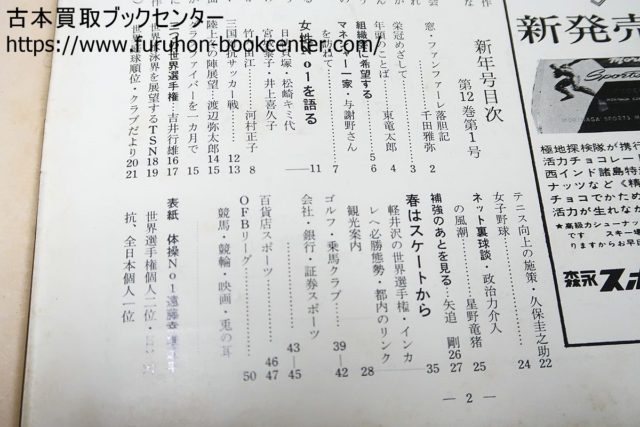 古本買取ブックセンター
https://www.furuhon-bookcenter.com/
新年号目次
第12巻第1号
窓・ファンファーレ落胆記
千田雅弥 2
栄冠めざして 3
年頭のことば 東竜太郎 4
組織隊に希望する 5
6
マネジャー一家・与謝野さん
を訪ねて 7
女性No1を語る
11
日比貝塚・松崎キミ代
宮 黎子・井上喜久子
竹 田江 河村正子 8
三国対抗サッカー戦 12
13
陸上 の陣展望 渡辺弥太郎 14
15
グラスファイバーを一カ月で 15
世界選手権 吉井行雄 16
17
世界泳界を展望するTSN 18
19
世界 球順位・クラブだより 20
21
テニス向上の施策・久保圭之助 22
女子野球 24
ネット裏球談・政治力介入
の風潮 星野竜猪 25
補強のあとを見る 矢追 剛 26
27
春はスケートから
35
軽井沢の世界選手権・インカ
レへ必勝態勢・都内のリンク
観光案内 28
ゴルフ・乗馬クラブ 39
42
会社・銀行・証券スポーツ
43
45
百貨店スポーツ 46
47
OFBリーグ 50
競馬・競輪・映画・兎の耳
表紙 体操No1遠藤幸雄
世界選手権個人二位・
抗、全日本個人一位
— 2 —
新発売
極地探検隊が携行
活力チョコレー
西インド諸島特
ナッツなど
チョコでかため
活力が生れな
★高級カシューナッ
スキー場
りますからお早
森永スポ